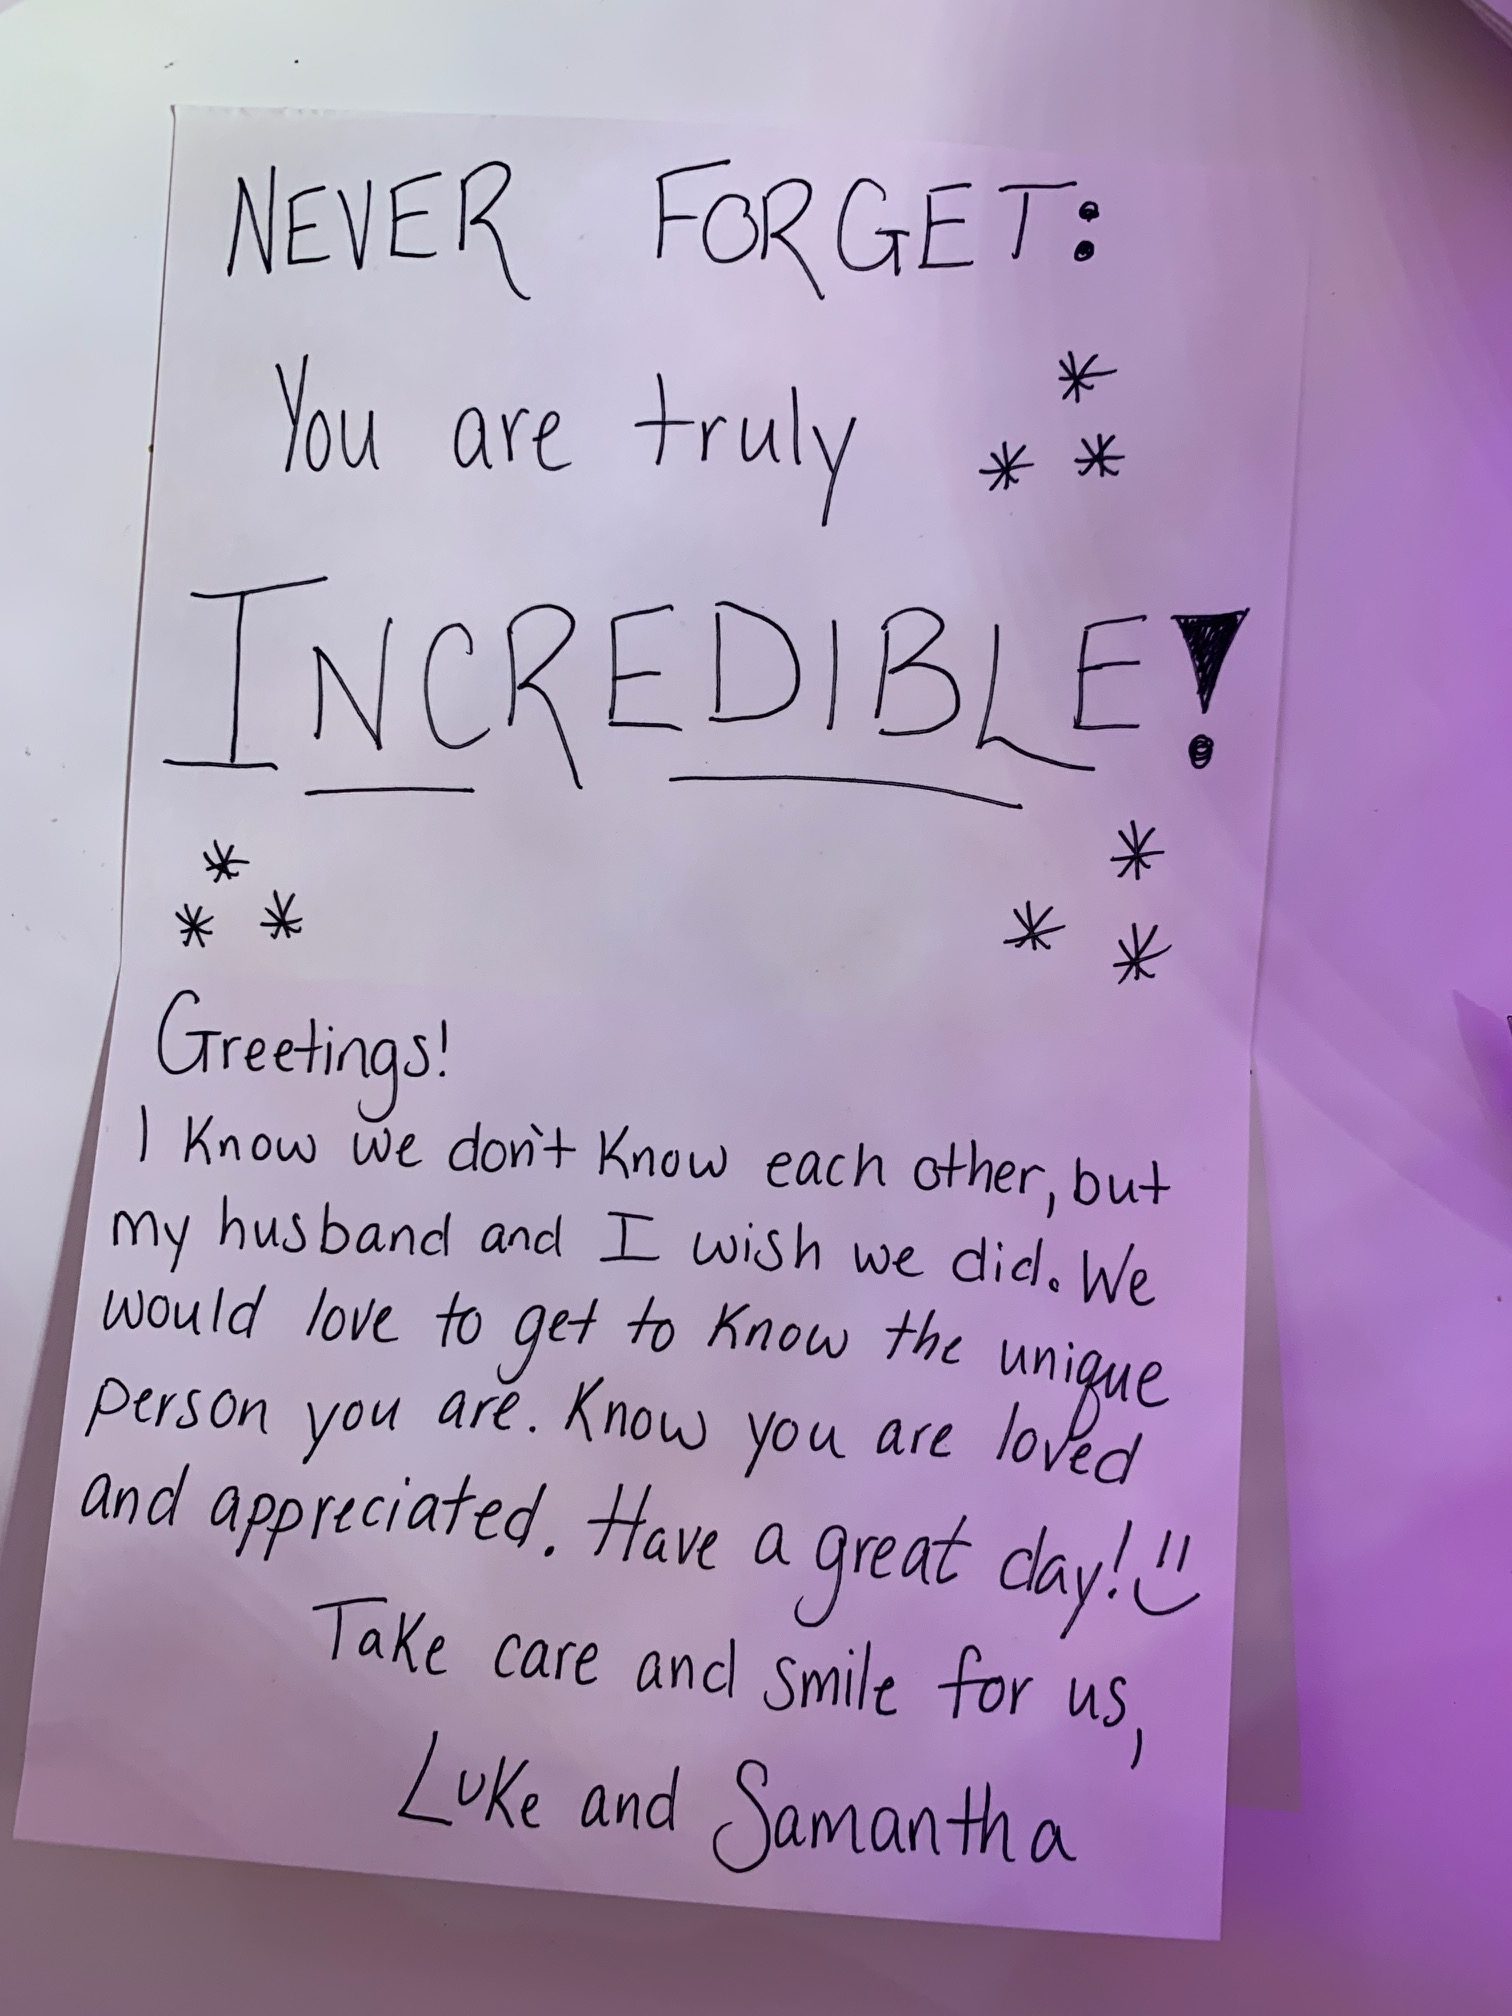 NEVER FORGET:
You are truly
INCREDIBLE!
Greetings!
I know we don't know each other, but
my husband and I wish we did. We
would love to get to know the unique
person you are. Know you are loved
and appreciated. Have a great day! :)
Take care and smile for us,
Luke and Samantha